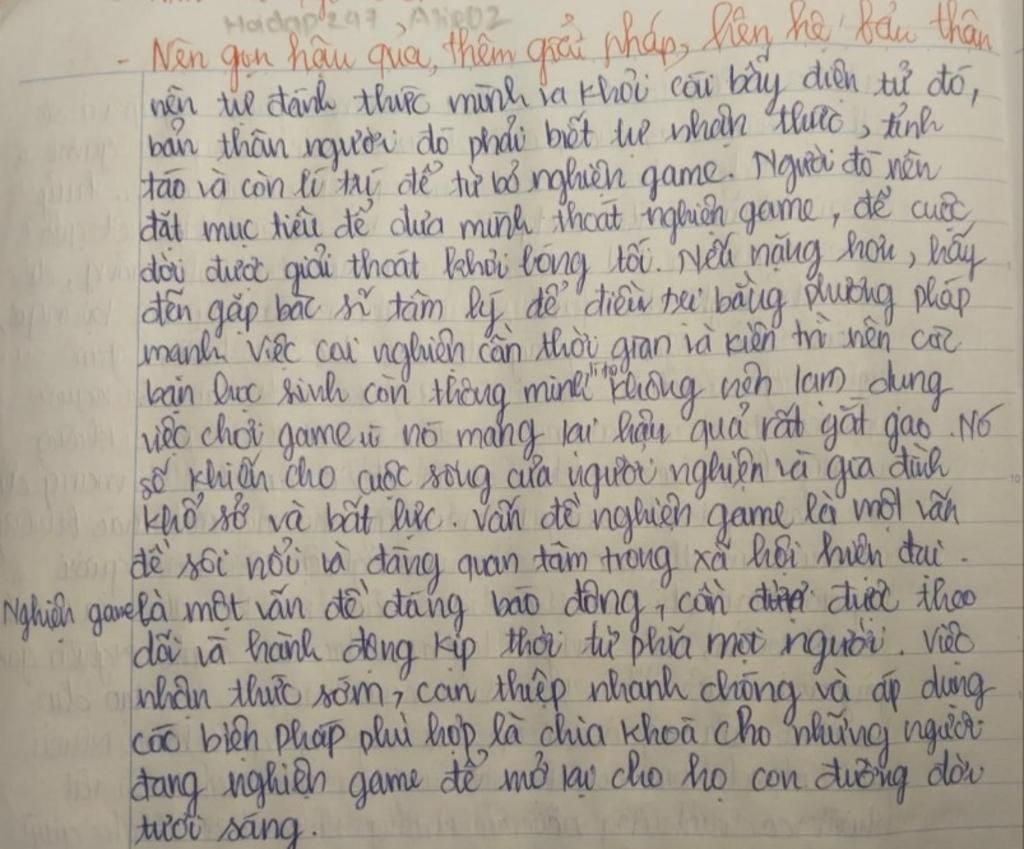 Hoidap247, Alie02
- Nên gọn hậu quả, thêm giải pháp, liên hệ bản thân
nên tự đánh thức mình ra khỏi cái bẫy điện tử đó,
bản thân người đó phải biết tự nhận thức, tỉnh
táo và còn lí trí để từ bỏ nghiện game. Người đó nên
đặt mục tiêu để đưa mình thoát nghiện game, để cuộc
đời được giải thoát khỏi bóng tối. Nếu nặng hơn, hãy
đến gặp bác sĩ tâm lý để điều trị bằng phương pháp
mạnh việc cai nghiện cần thời gian và kiên trì nên các
bạn học sinh còn thông minh không nên lạm dụng
việc chơi game vì nó mang lại hậu quả rất gắt gao. Nó
sẽ khiến cho cuộc sống của người nghiện và gia đình
khổ sở và bất lực. Vấn đề nghiện game là một vấn
đề sôi nổi và đáng quan tâm trong xã hội hiện đại.
Nghiện game là một vấn đề đáng báo động, cần được theo
dõi và hành động kịp thời từ phía mọi người. Việc
nhận thức sớm, can thiệp nhanh chóng và áp dụng
các biện pháp phù hợp, là chìa khoá cho những người
đang nghiện game để mở lại cho họ con đường đời
tươi sáng.